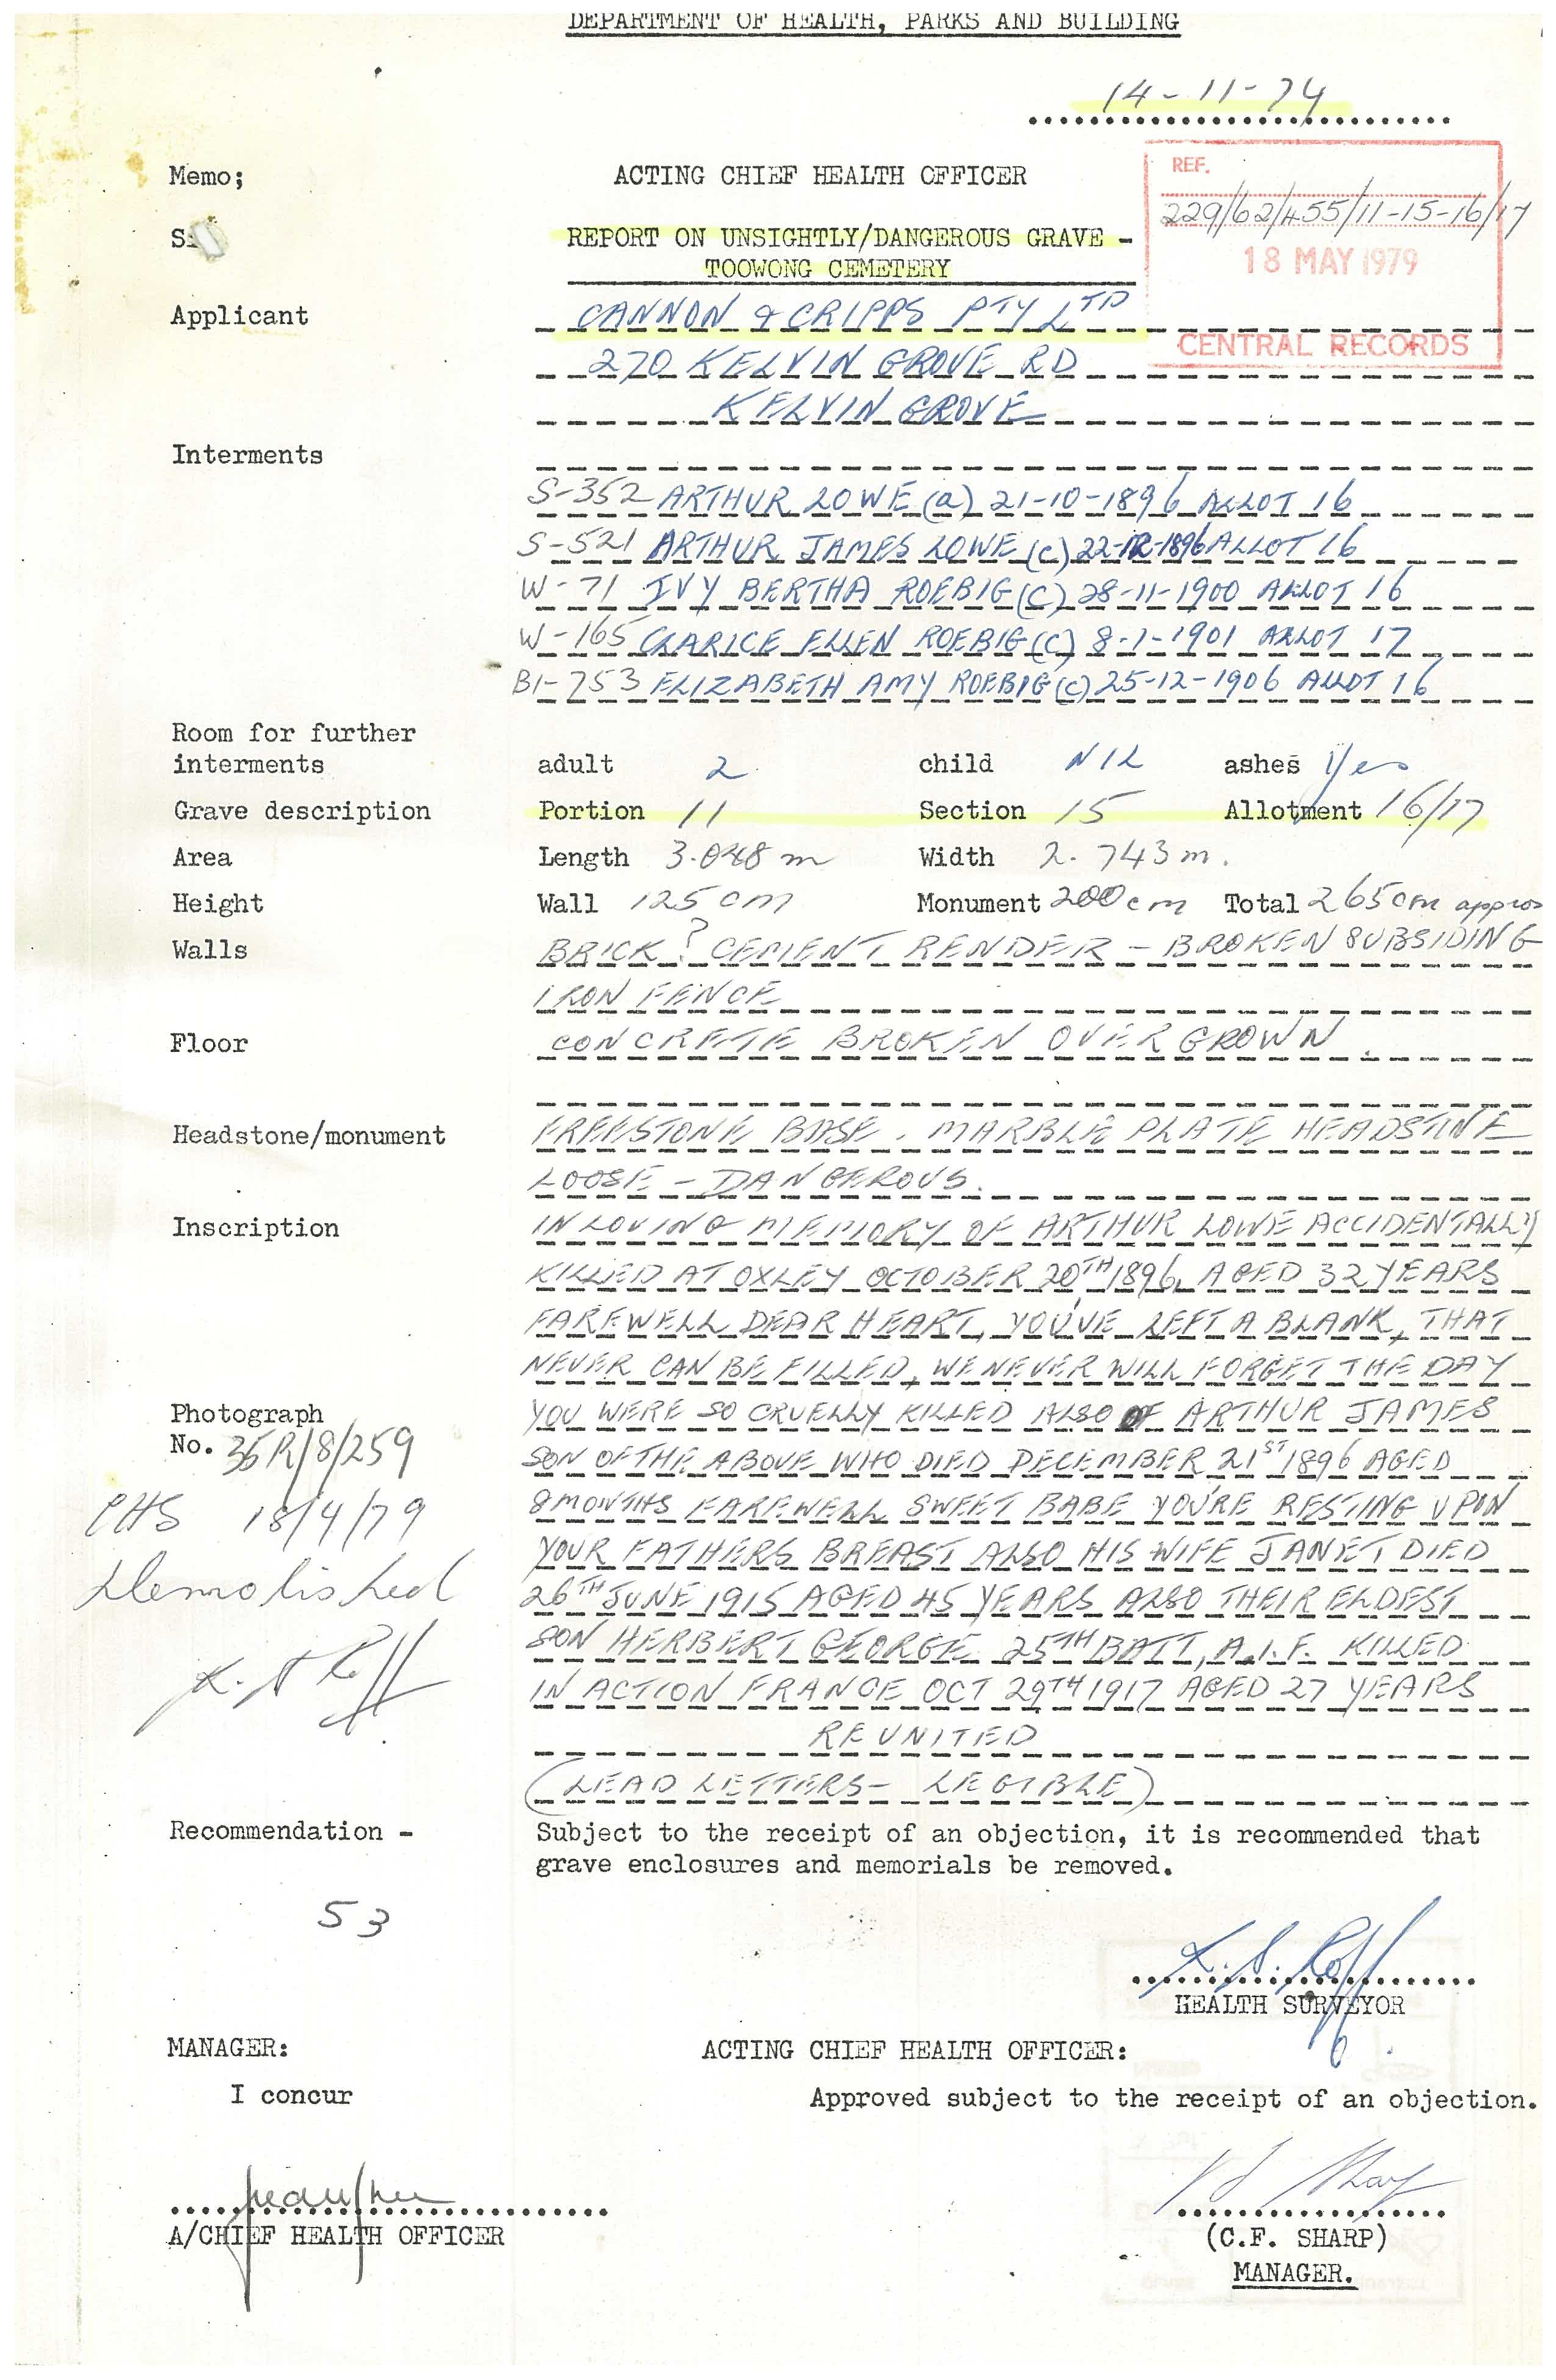 DEPARTMENT OF HEALTH, PARKS AND BUILDING
14-11-74
Memo; ACTING CHIEF HEALTH OFFICER
REF.
229/62/455/11-15-16/17
18 MAY 1979
CENTRAL RECORDS
REPORT ON UNSIGHTLY/DANGEROUS GRAVE -
TOOWONG CEMETERY
Applicant CANNON & CRIPPS PTY LTD
270 KELVIN GROVE RD
KELVIN GROVE
Interments
S-352 ARTHUR LOWE (a) 21-10-1896 ALLOT 16
S-521 ARTHUR JAMES LOWE (c) 22-12-1896 ALLOT 16
W-71 IVY BERTHA ROEBIG (C) 28-11-1900 ALLOT 16
W-165 CLARICE ELLEN ROEBIG (C) 8-1-1901 ALLOT 17
B1-753 ELIZABETH AMY ROEBIG (C) 25-12-1906 ALLOT 16
Room for further
interments adult 2 child NIL ashes Yes
Grave description Portion 11 Section 15 Allotment 16/17
Area Length 3.048 m Width 2.743 m.
Height Wall 125 cm Monument 200 cm Total 265 cm approx
Walls BRICK? CEMENT RENDER - BROKEN SUBSIDING
IRON FENCE
Floor CONCRETE BROKEN OVERGROWN.
Headstone/monument FREESTONE BASE. MARBLE PLATE HEADSTONE
LOOSE - DANGEROUS.
Inscription IN LOVING MEMORY OF ARTHUR LOWE ACCIDENTALLY
KILLED AT OXLEY OCTOBER 20TH 1896, AGED 32 YEARS
FAREWELL DEAR HEART, YOU'VE LEFT A BLANK, THAT
NEVER CAN BE FILLED, WE NEVER WILL FORGET THE DAY
YOU WERE SO CRUELLY KILLED ALSO OF ARTHUR JAMES
SON OF THE ABOVE WHO DIED DECEMBER 21ST 1896 AGED
8 MONTHS FAREWELL SWEET BABE YOU'RE RESTING UPON
YOUR FATHERS BREAST ALSO HIS WIFE JANET DIED
26TH JUNE 1915 AGED 45 YEARS ALSO THEIR ELDEST
SON HERBERT GEORGE 25TH BATT, A.I.F. KILLED
IN ACTION FRANCE OCT 29TH 1917 AGED 27 YEARS
REUNITED
(LEAD LETTERS - LEGIBLE)
Photograph
No. 36R/8/259
CHS 18/4/79
Demolished
K. S. Roff
Recommendation - Subject to the receipt of an objection, it is recommended that
grave enclosures and memorials be removed.
53
K. S. Roff
HEALTH SURVEYOR
MANAGER: ACTING CHIEF HEALTH OFFICER:
I concur Approved subject to the receipt of an objection.
A/CHIEF HEALTH OFFICER
(C.F. SHARP)
MANAGER.